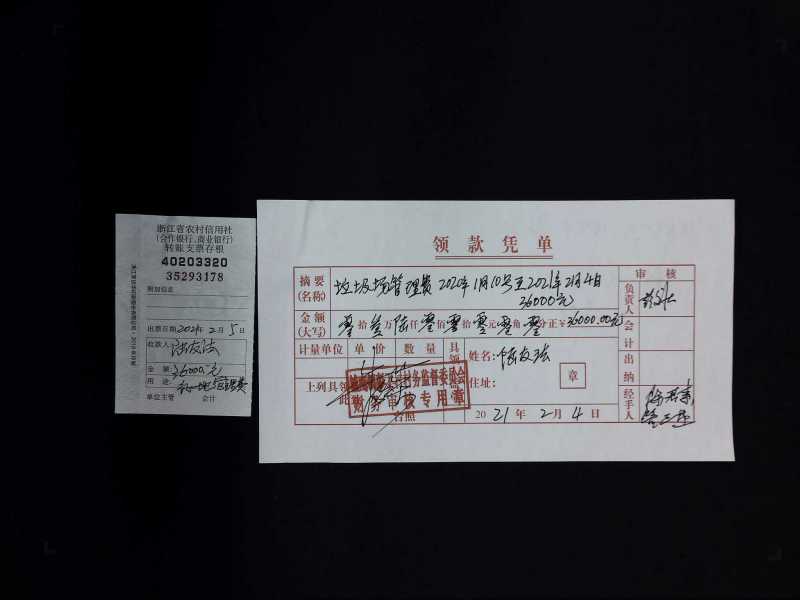 浙江省农村信用社
(合作银行、商业银行)
转账支票存根
40203320
35293178
附加信息
出票日期 2021年 2月 5日
收款人:
金 额: 36000.元
用 途:
单位主管 会计
领款凭单
摘要(名称) 垃圾场管理费 2020年1月10号至2021年2月4日
36000元
金额(大写) 零拾叁万陆仟零佰零拾零元零角零分正¥36000.00元
计量单位 单价 数量
姓名:
住址:
章
上列具领
此
台照
村务监督委员会
财务审核专用章
2021年 2月 4日
审核
负责人
会计
出纳
经手人